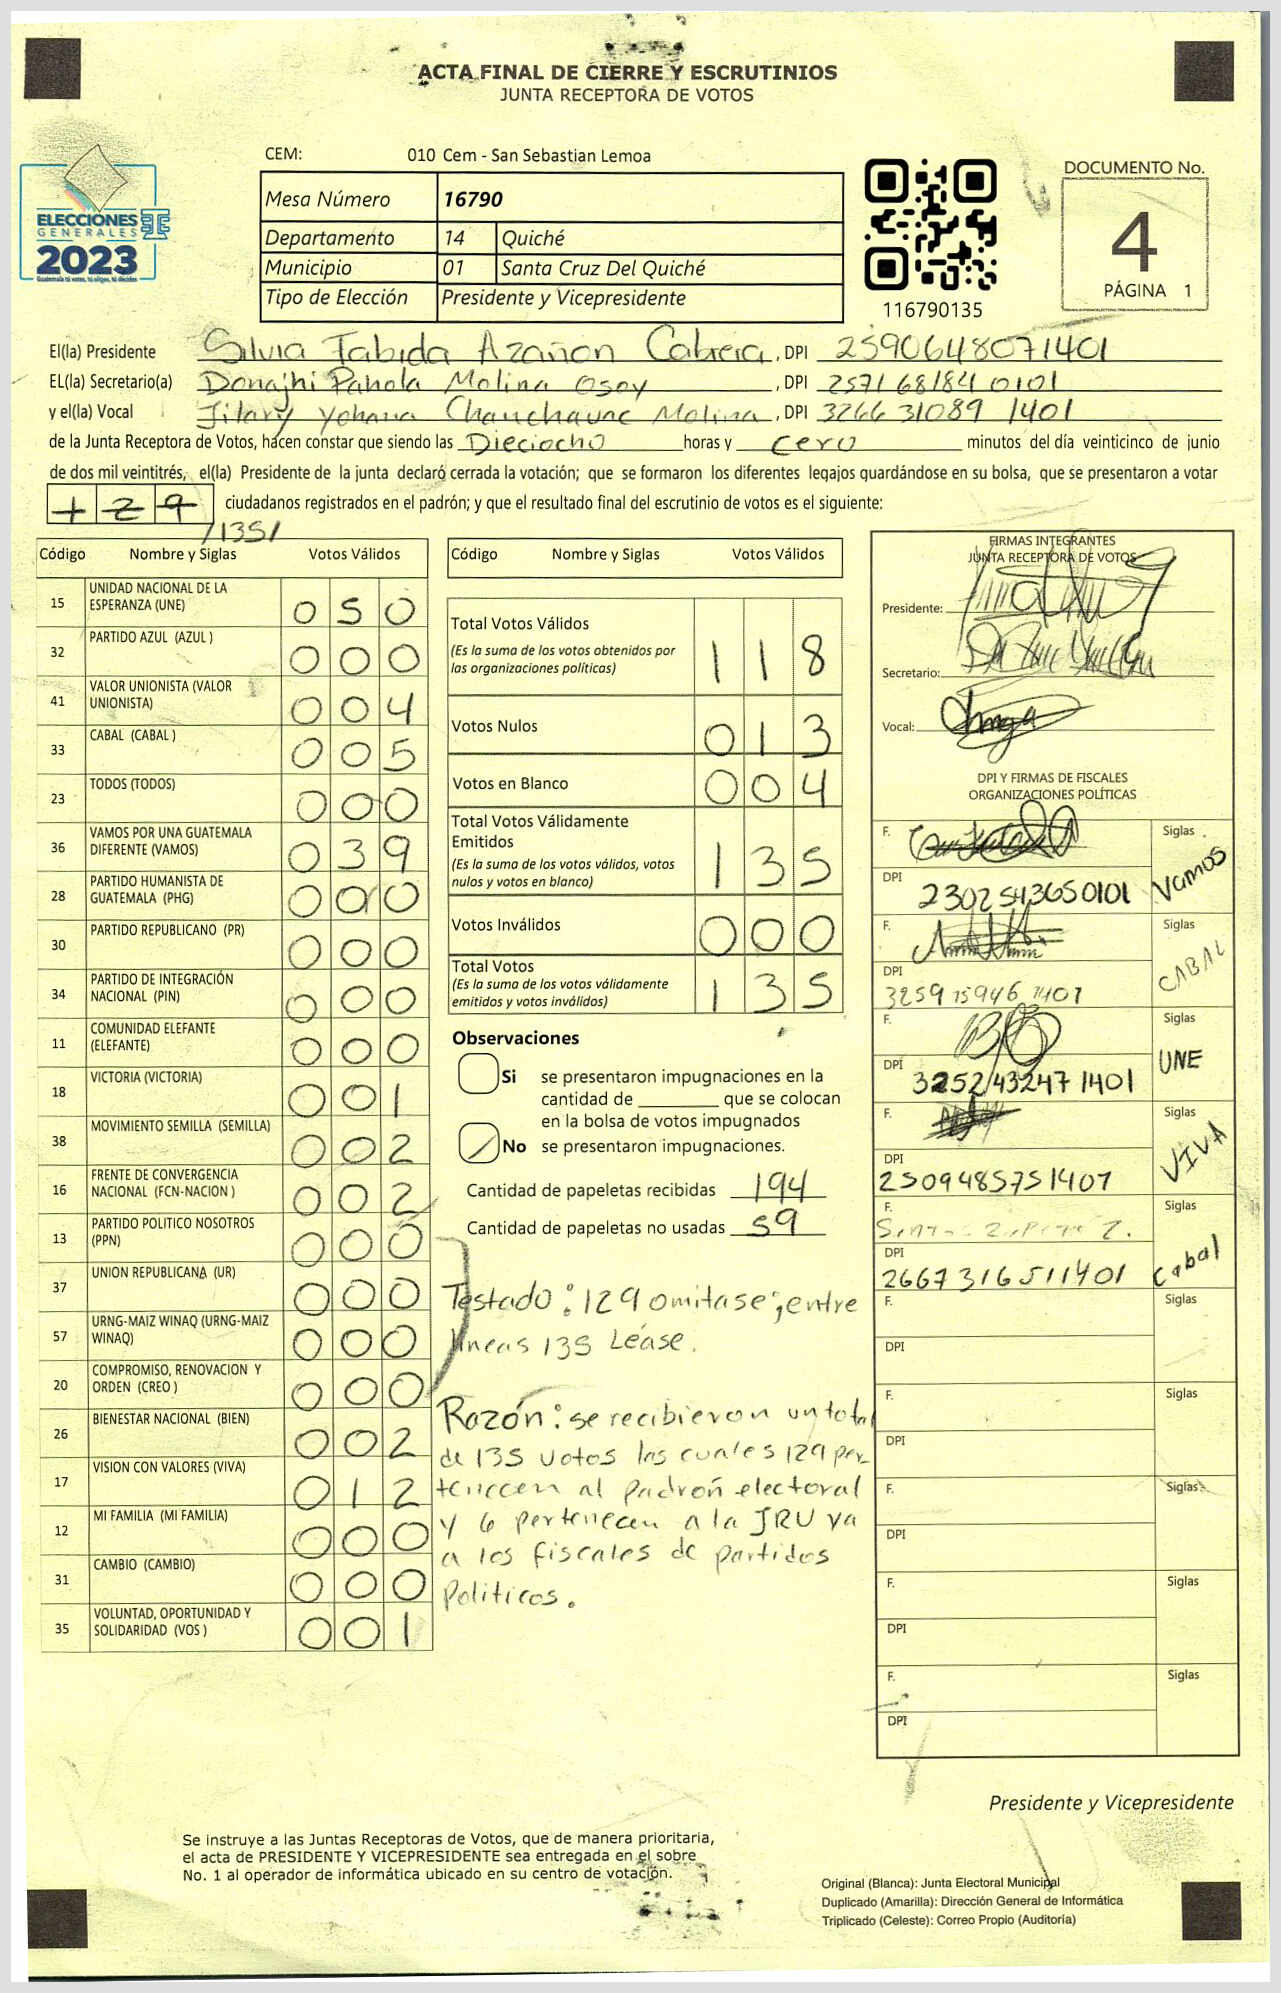 ACTA FINAL DE CIERRE Y ESCRUTINIOS
JUNTA RECEPTORA DE VOTOS
ELECCIONES
GENERALES
2023
Guatemala tú votas, tú eliges, tú decides
CEM: 010 Cem - San Sebastian Lemoa
Mesa Número 16790
Departamento 14 Quiché
Municipio 01 Santa Cruz Del Quiché
Tipo de Elección Presidente y Vicepresidente
116790135
DOCUMENTO No.
4
PÁGINA 1
El(la) Presidente Silvia Tabida Azañon Cabrera, DPI 2590648071401
EL(la) Secretario(a) Donajhi Pahola Molina Osoy, DPI 2571 68184 0101
y el(la) Vocal Jilary Yohana Molina, DPI 3266 31089 1401
de la Junta Receptora de Votos, hacen constar que siendo las Dieciocho horas y cero minutos del día veinticinco de junio
de dos mil veintitrés, el(la) Presidente de la junta declaró cerrada la votación; que se formaron los diferentes legajos guardándose en su bolsa, que se presentaron a votar
129 ciudadanos registrados en el padrón; y que el resultado final del escrutinio de votos es el siguiente:
/135/
Código Nombre y Siglas Votos Válidos
15 UNIDAD NACIONAL DE LA
ESPERANZA (UNE) 050
32 PARTIDO AZUL (AZUL ) 000
41 VALOR UNIONISTA (VALOR
UNIONISTA) 004
33 CABAL (CABAL ) 005
23 TODOS (TODOS) 000
36 VAMOS POR UNA GUATEMALA
DIFERENTE (VAMOS) 039
28 PARTIDO HUMANISTA DE
GUATEMALA (PHG) 000
30 PARTIDO REPUBLICANO (PR) 000
34 PARTIDO DE INTEGRACIÓN
NACIONAL (PIN) 000
11 COMUNIDAD ELEFANTE
(ELEFANTE) 000
18 VICTORIA (VICTORIA) 001
38 MOVIMIENTO SEMILLA (SEMILLA) 002
16 FRENTE DE CONVERGENCIA
NACIONAL (FCN-NACION ) 002
13 PARTIDO POLITICO NOSOTROS
(PPN) 000
37 UNION REPUBLICANA (UR) 000
57 URNG-MAIZ WINAQ (URNG-MAIZ
WINAQ) 000
20 COMPROMISO, RENOVACION Y
ORDEN (CREO ) 000
26 BIENESTAR NACIONAL (BIEN) 002
17 VISION CON VALORES (VIVA) 012
12 MI FAMILIA (MI FAMILIA) 000
31 CAMBIO (CAMBIO) 000
35 VOLUNTAD, OPORTUNIDAD Y
SOLIDARIDAD (VOS ) 001
Código Nombre y Siglas Votos Válidos
Total Votos Válidos
(Es la suma de los votos obtenidos por
las organizaciones políticas) 118
Votos Nulos 013
Votos en Blanco 004
Total Votos Válidamente
Emitidos
(Es la suma de los votos válidos, votos
nulos y votos en blanco) 135
Votos Inválidos 000
Total Votos
(Es la suma de los votos válidamente
emitidos y votos inválidos) 135
Observaciones
Si se presentaron impugnaciones en la
cantidad de ________ que se colocan
en la bolsa de votos impugnados
No se presentaron impugnaciones.
Cantidad de papeletas recibidas 194
Cantidad de papeletas no usadas 59
Testado: 129 omitase; entre
líneas 135 Léase.
Razón: se recibieron un total
de 135 votos los cuales 129 per
tenecen al padrón electoral
y 6 pertenecen a la JRV ya
a los fiscales de partidos
Políticos.
FIRMAS INTEGRANTES
JUNTA RECEPTORA DE VOTOS
Presidente:
Secretario:
Vocal:
DPI Y FIRMAS DE FISCALES
ORGANIZACIONES POLÍTICAS
F. Siglas
DPI 2302543650101 Vamos
F. Siglas
DPI 3259 15946 1401 CABAL
F. Siglas
DPI 3252432471401 UNE
F. Siglas
DPI 2509485751401 VIVA
F. Siglas
DPI 2667316511401 Cabal
F. Siglas
DPI
F. Siglas
DPI
F. Siglas
DPI
F. Siglas
DPI
F. Siglas
DPI
Presidente y Vicepresidente
Se instruye a las Juntas Receptoras de Votos, que de manera prioritaria,
el acta de PRESIDENTE Y VICEPRESIDENTE sea entregada en el sobre
No. 1 al operador de informática ubicado en su centro de votación.
Original (Blanca): Junta Electoral Municipal
Duplicado (Amarilla): Dirección General de Informática
Triplicado (Celeste): Correo Propio (Auditoría)